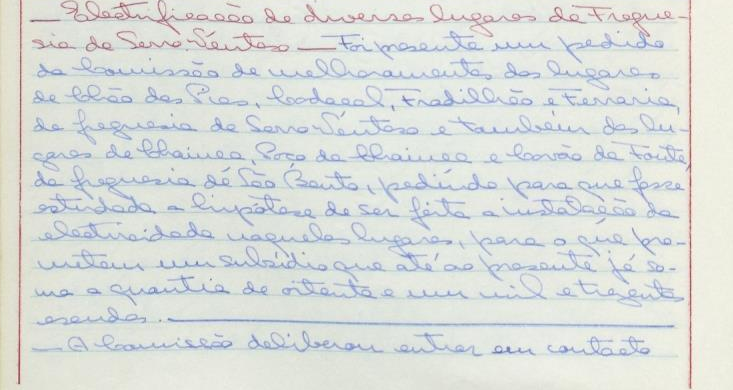 — Electrificação de diversos lugares da Fregue-
sia de Serro Ventoso — Foi presente um pedido
da Comissão de melhoramentos dos lugares
de Chão das Pias, Codaçal, Fradilhão e Ferraria,
da freguesia de Serro Ventoso e também dos lu-
gares de Chainça, Poço da Chainça e Covão da Fonte,
da freguesia de São Bento, pedindo para que fosse
estudada a hipótese de ser feita a instalação da
electricidade naqueles lugares, para o que pro-
metem um subsídio que até ao presente já so-
ma a quantia de oitenta e um mil e trezentos
escudos.
— A Comissão deliberou entrar em contacto